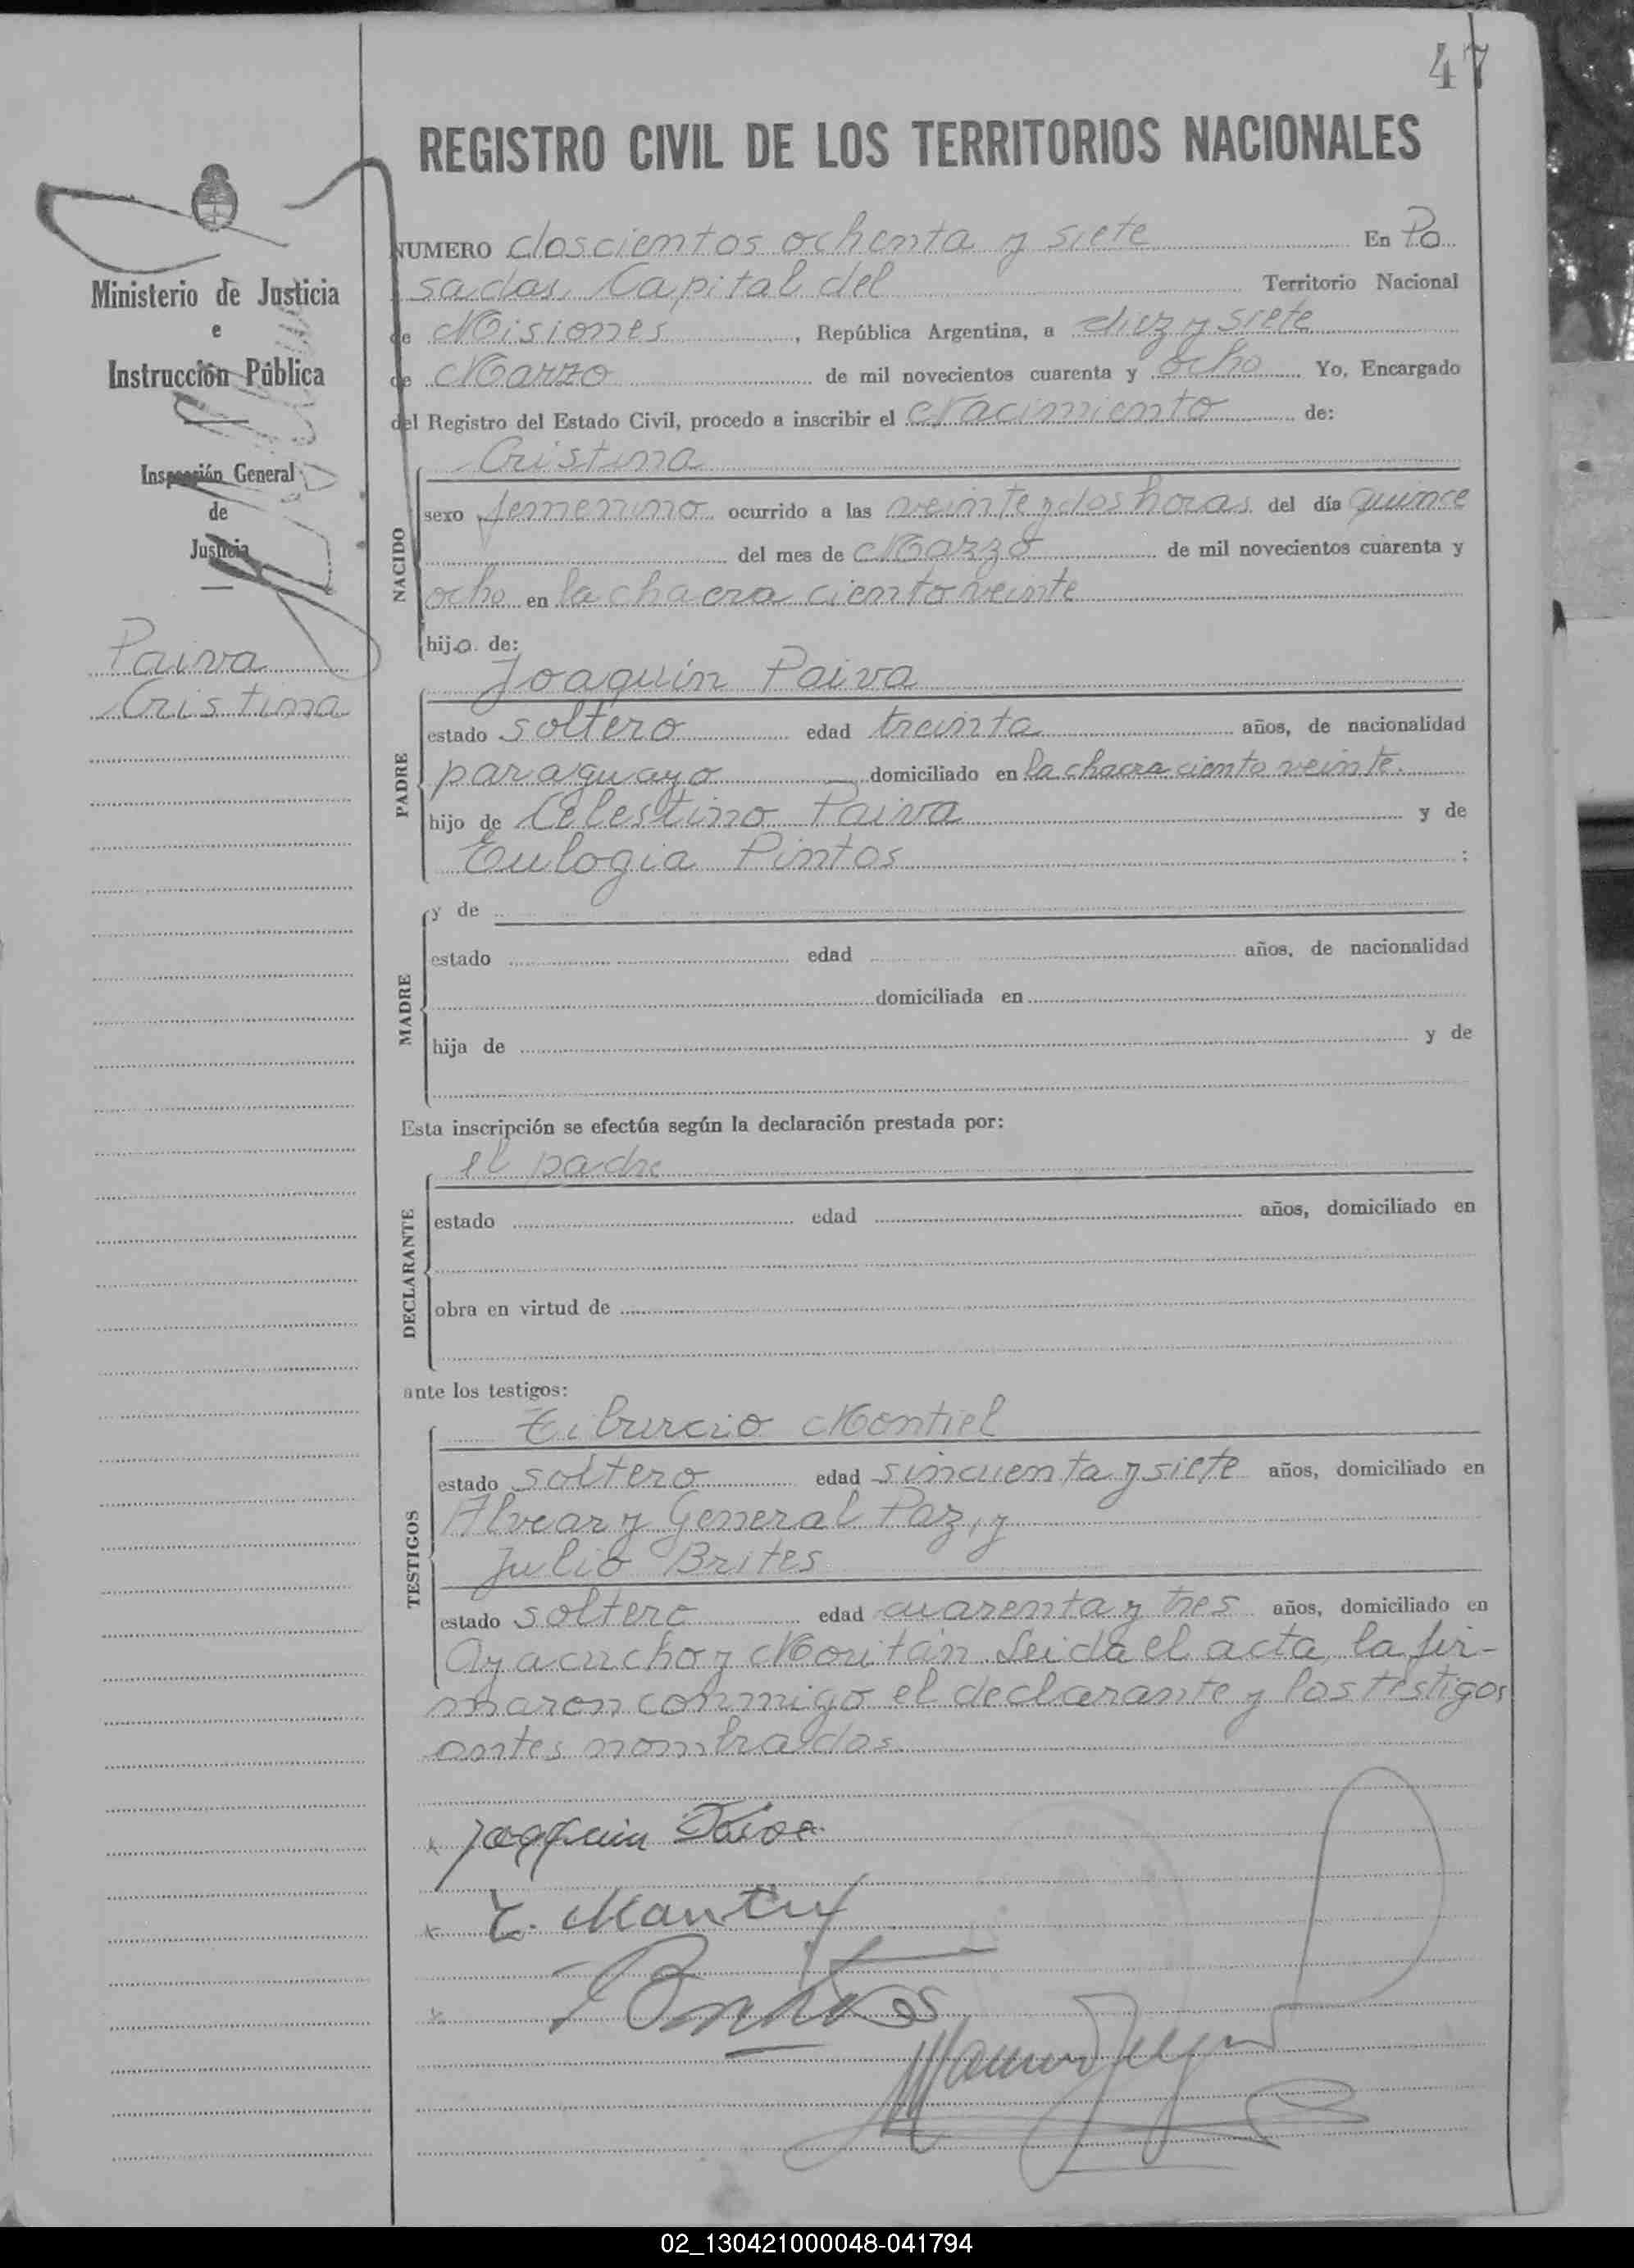 47
REGISTRO CIVIL DE LOS TERRITORIOS NACIONALES
Ministerio de Justicia
e
Instrucción Pública
Inspección General
de
Justicia
Paiva
Cristina
NUMERO doscientos ochenta y siete En Po
sadas, Capital del Territorio Nacional
de Misiones, República Argentina, a diez y siete
de Marzo de mil novecientos cuarenta y ocho Yo, Encargado
del Registro del Estado Civil, procedo a inscribir el Nacimiento de:
NACIDO
Cristina
sexo femenino ocurrido a las veinte y dos horas del día quince
del mes de Marzo de mil novecientos cuarenta y
ocho en la chacra ciento veinte
hija de:
PADRE
Joaquín Paiva
estado soltero edad treinta años, de nacionalidad
paraguayo domiciliado en la chacra ciento veinte.
hijo de Celestino Paiva y de
Eulogia Pintos ;
MADRE
y de
estado edad años, de nacionalidad
domiciliada en
hija de y de
Esta inscripción se efectúa según la declaración prestada por:
DECLARANTE
el padre
estado edad años, domiciliado en
obra en virtud de
ante los testigos:
TESTIGOS
Tiburcio Montiel
estado soltero edad sincuenta y siete años, domiciliado en
Alvear y General Paz, y
Julio Brites
estado soltero edad cuarenta y tres años, domiciliado en
Ayacucho y Leida el acta, la fir-
maron conmigo el declarante y los testigos
antes nombrados
Joaquin Paiva
T. Montiel
Brites
02_130421000048-041794